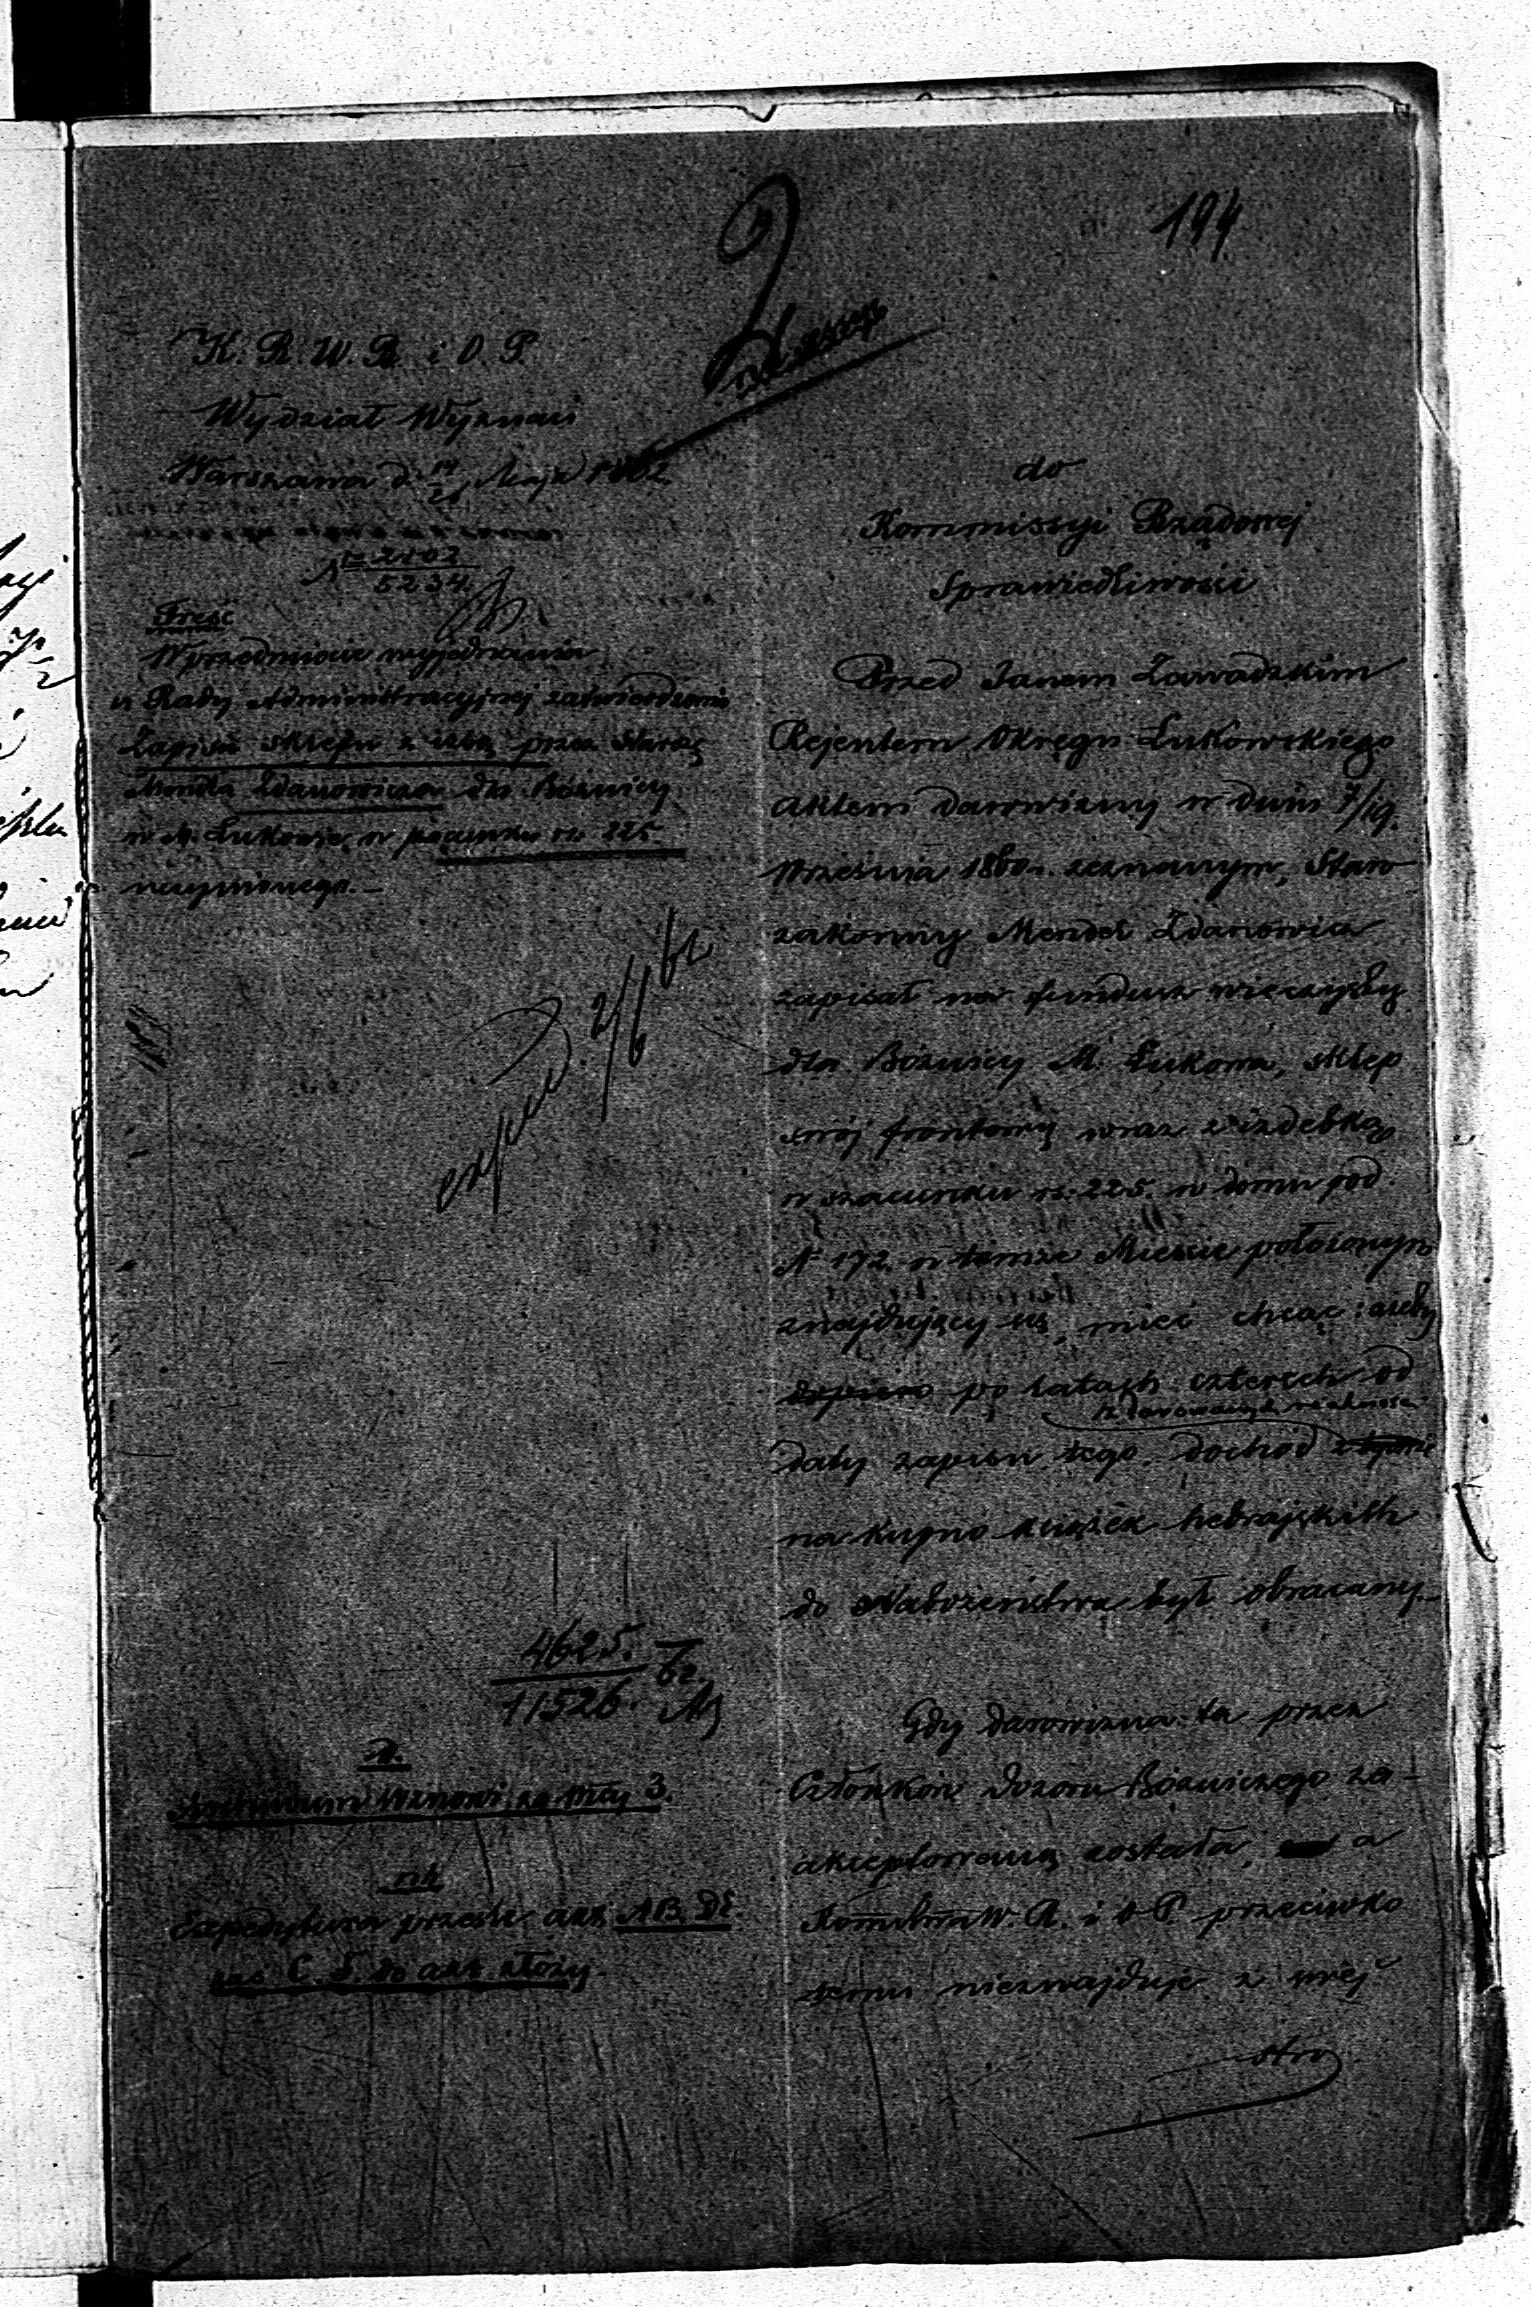 194
K. R. W. R. i O. P.
Wydział Wyznań
Warszawa d. 14/26 Maja 1862
N 2102
5234.
Treść
W przedmiocie wyjednania
u Rady Administracyjnej zatwierdzenia
zapisu sklepu z izbą przez Staroz.
Mendla Zdanowicza dla Bóżnicy
w M. Łukowie, w szacunku rs. 225
uczynionego.—
2/6 62
4625.
11526.
Expedytura prześle akt AB. DE
zaś C. F. do akt złoży.
do
Kommissyi Rządowej
Sprawiedliwości
Przed Janem Zawadzkim
Rejentem Okręgu Łukowskiego
aktem darowizny w dniu 7/19.
Września 1860 r. zeznanym, Staro
zakonny Mendel Zdanowicz
zapisał na fundusz wieczysty
dla Bóżnicy M. Łukowa, sklep
swój frontowy wraz z izdebką
w szacunku rs. 225. w domu pod
N 172. w temże Mieście położonym
znajdujący się, mieć chcąc: ażeby
dopiero po latach czterech od
z darowanych realności
daty zapisu tego, dochód
na kupno książek hebrajskich
do Nabożeństwa był obracany.—
Gdy darowizna ta przez
Członków Dozoru Bóżniczego za-
akceptowaną została, a
W. R. i O. P. przeciwko
temu nieznajduje z swej
stro